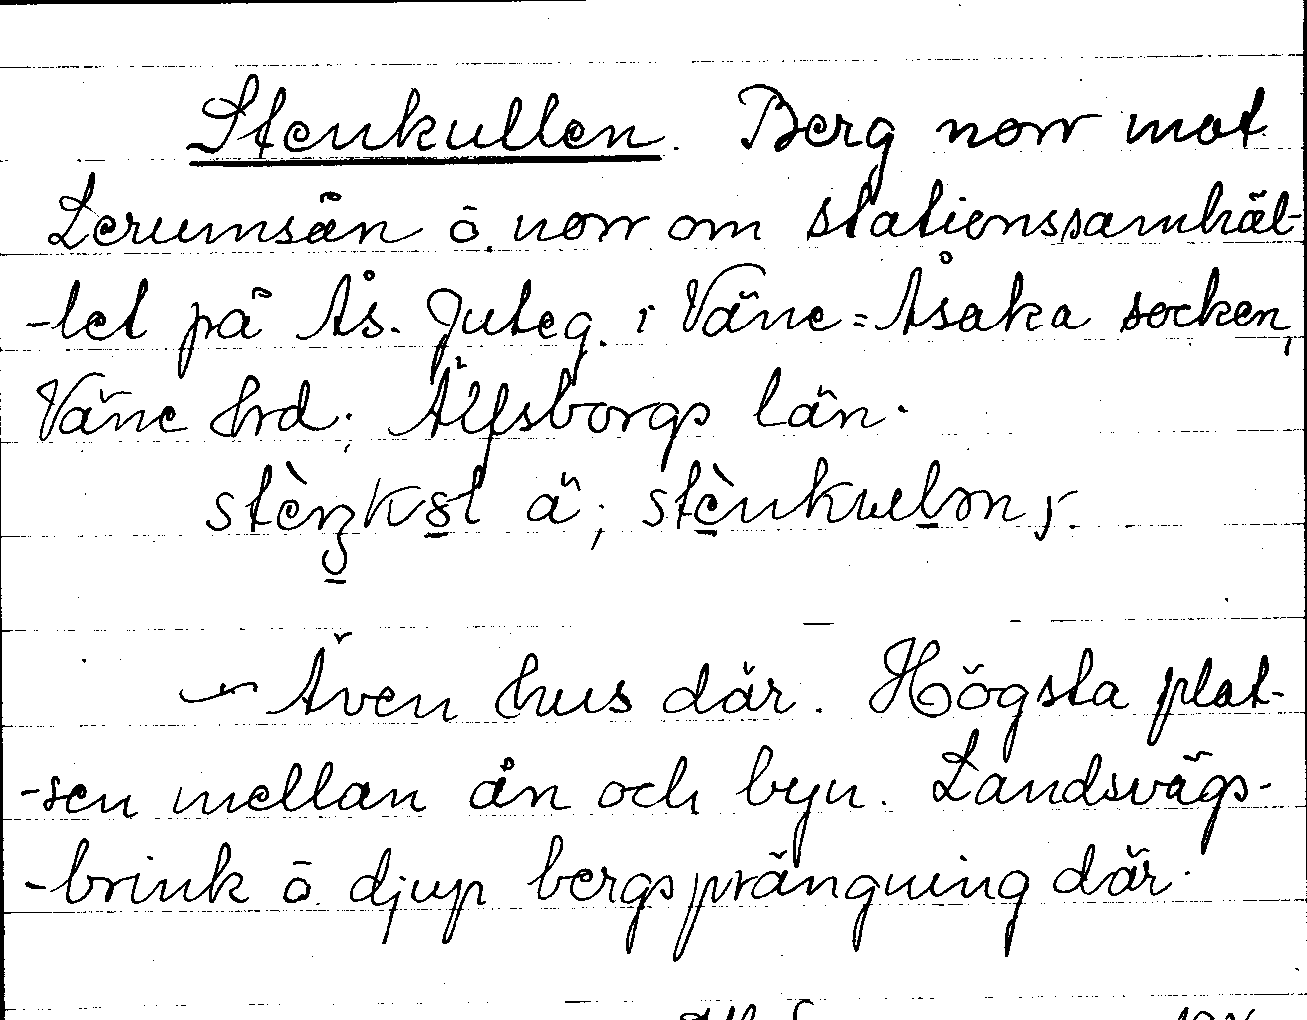 Stenkullen. Berg norr mot
Lerumsån o. norr om stationssamhäl-
-let på Ås. Juteg. i Väne=Åsaka socken,
Väne hrd; Älfsborgs län.
ä;
— Även hus där. Högsta plat-
-sen mellan ån och byn. Landsvägs-
-brink o. djup bergsprängning där.